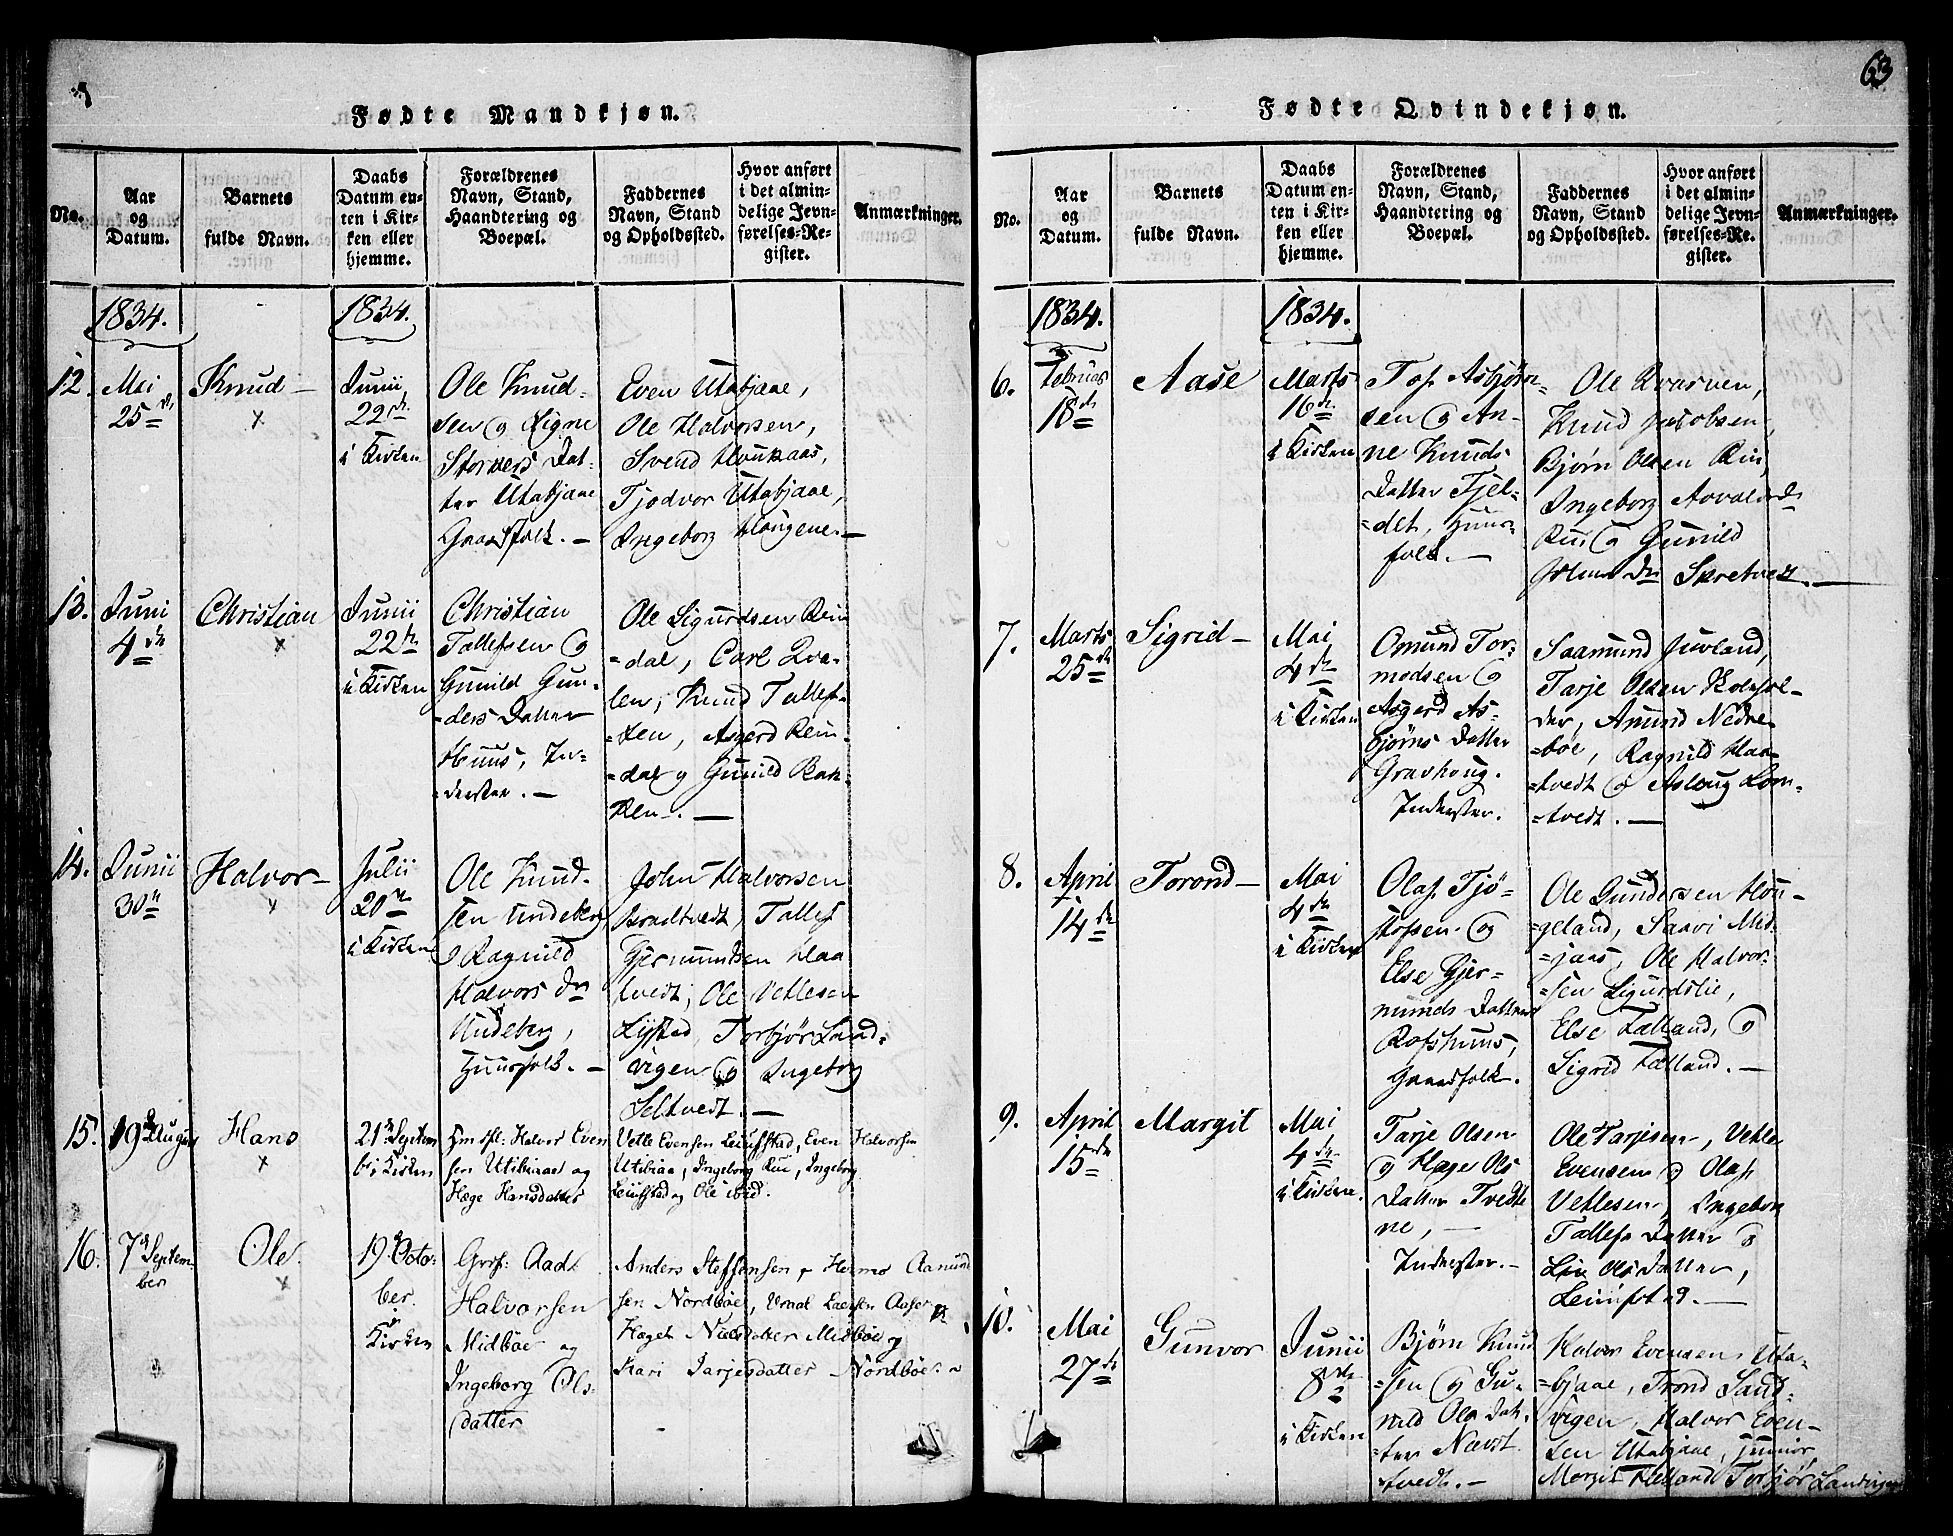 63
Fødte Mandkjøn.
No.
Aar
og
Datum.
Barnets
fulde Navn.
Daabs
Datum en-
ten i Kir-
ken eller
hjemme.
Forældrenes
Navn, Stand,
Haandtering og
Boepæl.
Faddernes
Navn, Stand
og Opholdssted.
Hvor anført
i det almin-
delige Jevn-
førelses-Re-
gister.
Anmærkninger.
1834.
1834.
12.
Mai
25de
Knud
Junii
22de
i Kirken
Ole Knud-
sen og Signe
Storkers Dat-
ter Utabjaae
Gaardfolk.
Even Utabjaae,
Ole Halvorsen,
Svend Houkaas,
Tjodvor Utabjaae,
Ingeborg Haugene.
13.
Juni
4de
Christian
Junii
22de
i Kirken
Christian
Tallefsen og
Gunild Gun-
ders Datter
Huus, In-
derster.
Ole Sigurdsen Rein
=dal, Carl Qva-
len, Knud Tallef-
=sen, Asgerd Rein-
=dal og Gunild Bak-
ken.
14.
Junii
30te
Halvor
Julii
20de
i Kirken
Ole Knud-
sen Undeberg
og Ragnild
Halvors Dtr
Undeberg,
Huusfolk.
John Halvorsen
Bradtvedt, Tallef
Gjermundsen Haa
tvedt, Ole Vetlesen
Lystad, Torbjør Sand-
vigen og Ingeborg
Seltvedt.
15.
19de August
Hans
21de Septem
b: i Kirken
Hmdsfl: Halvor Even
sen Utibiaae og
Hæge Hansdatter
Vetle Evensen Leiufstad, Even Halvorsen
Utibiaae, Ingeborg Rui, Ingeborg
Leiufstad og Ole ibid.
16.
7de Septem-
ber
Ole.
19de Octo-
ber.
i
Kirken
Grdf: Aad
Halvorsen
Midbøe og
Ingeborg Ols-
datter
Anders Steffensen, Hermo Aamund
sen Nordbøe,
Haget Nielsdatter Midbøe og
Kari Tarjesdatter Nordbøe
Fødte Qvindekjøn.
No.
Aar
og
Datum.
Barnets
fulde Navn.
Daabs
Datum en-
ten i Kir-
ken eller
hjemme.
Forældrenes
Navn, Stand,
Haandtering og
Boepæl.
Faddernes
Navn, Stand
og Opholdssted.
Hvor anført
i det almin-
delige Jevn-
førelses-Re-
gister.
Anmærkninger.
1834.
1834.
6.
Februar
18de
Aase
Marts
16de
i Kirken
Tof Asbjørn-
sen og An-
ne Knuds
Datter Fjel-
=det, Huus-
folk.
Ole Kvasven,
Knud Jacobsen,
Bjørn Olsen Rui,
Ingeborg Aavalds Dr
Rui og Gunild
Johns Dr Skretvedt.
7.
Marts
25de
Sigrid
Mai
4de
i Kirken
Omund Tor-
modsen og
Asgerd As-
bjørns Datter
Gravhaug.
Inderster.
Saamund Juvland,
Tarje Olsen Kolsol-
der, Amund Nedre-
bøe, Ragnild Haa-
tvedt og Aslaug Lom-
=tvedt.
8.
April
14de
Torond
Mai
4de
i Kirken
Olaf Tjø-
stofsen og
Else Gjer-
munds Datter
Rofshuus,
Gaardfolk.
Ole Gundersen Hou-
=geland, Saavi Mid-
=jaas, Ole Halvor-
=sen Sigurdslie,
Else Lalland, og
Sigrid Lalland.
9.
April
15de
Margit
Mai
4de
i Kirken
Tarje Olsen
og Hæge Ols
Datter Tvedte
ne,
Inderster.
Ole Tarjesen, Vetle
Evensen og Olaf
Vetlesen, Ingeborg
Tallefs Datter og
Liv Ols Datter,
Leiufstad.
10.
Mai
27de
Gunvor
Junii
8de
i Kirken
Bjørn Knud
=sen og Gu-
nild Ols Dat-
=ter Næst
tvedt.
Halvor Evensen Uta-
=bjaae, Trond Sand-
vigen, Halvor Even-
sen Utabjaae, junior,
Margit Helland Torbjør Sandvigen